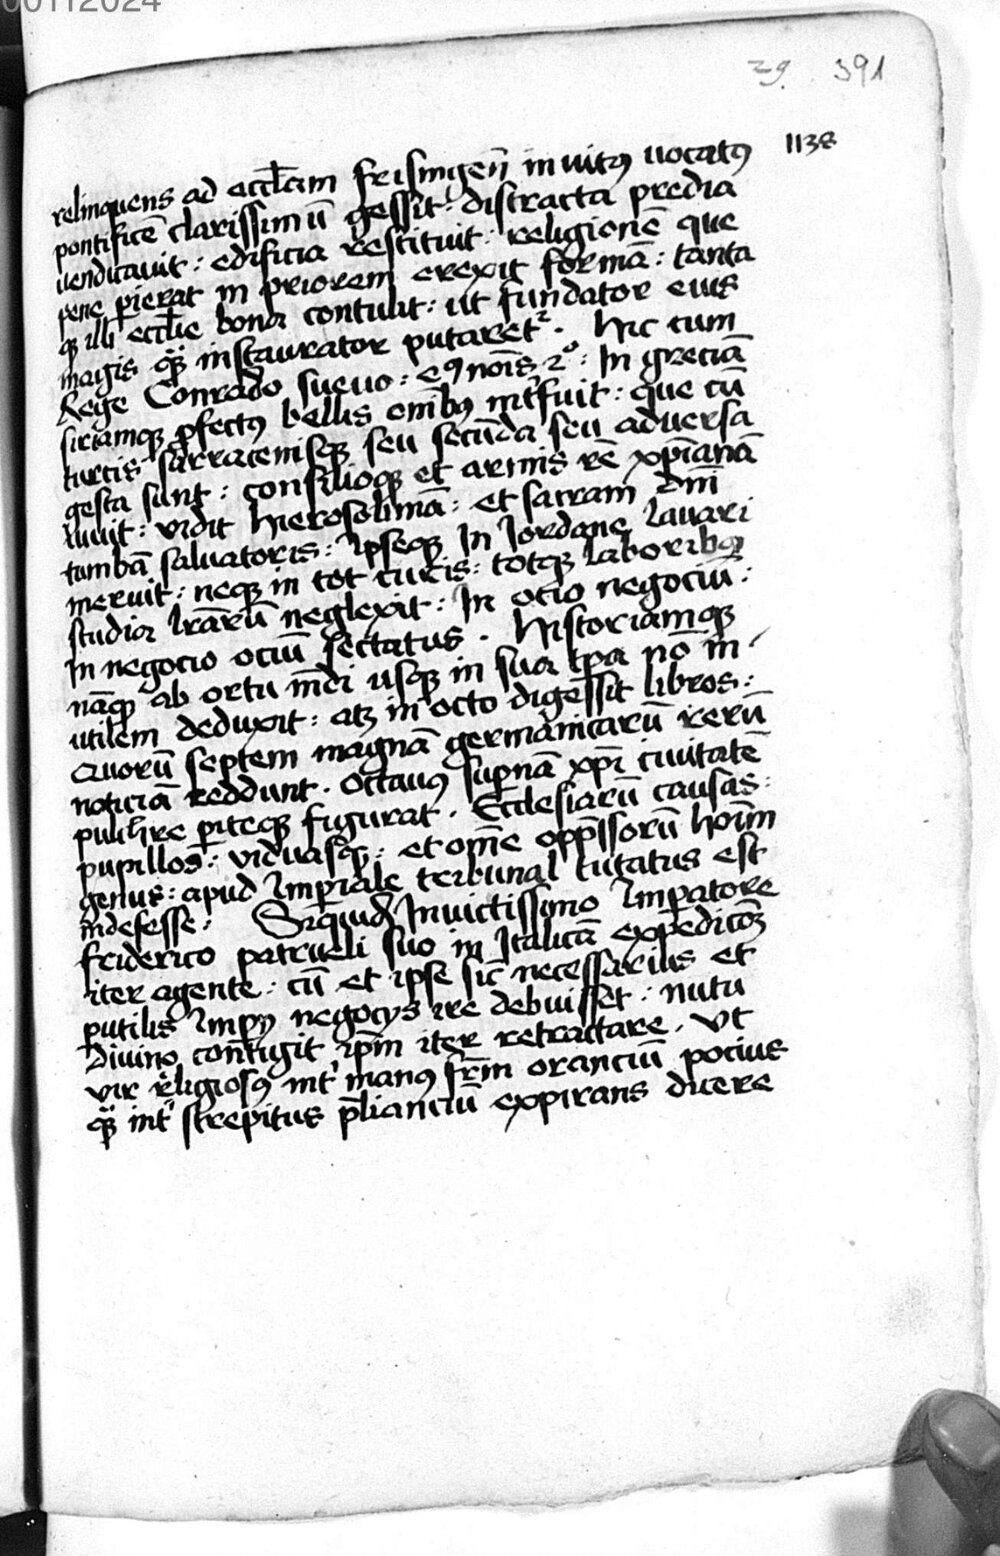 00112024
29. 391
1138
relinquens ad eccl̄iam frisingen̄ invitꝰ vocatꝰ
pontificē clarissimū gessit: distracta predia
vendicavit: edificia restituit: religionē que
pene perierat in priorem erexit formā: tanta
qꝫ illi eccl̄ie bona contulit: ut fundator eius
magis qꝫ̄ instaurator putaretᷣ. Hic cum
Rege Conrado suevo: eꝰ nōis 2°: In greciā
siriamqꝫ ꝓfectꝰ bellis om̄ibꝰ int̄fuit: que cū
turcis sarracenisqꝫ seu secūda seu adversa
gesta sunt: consilioqꝫ et armis rē xp̄ianā
iuvit: vidit hierosolimā: et sacram dn̄i
tumbā salvatoris: Ipseqꝫ In Jordane lavari
meruit: neqꝫ in tot curis: totqꝫ laboribꝰ
studia lr̄arū neglexit: In ocio negociū:
In negocio ociū sectatus. Historiamqꝫ
nāqꝫ ab ortu mūdi usqꝫ in sua tp̄a nō in-
utilem deduxit: atqꝫ in octo digessit libros:
Quorū septem magnā germanicarū rerū
noticiā reddunt. Octavꝰ supernā xp̄i civitatē
pulchre periteqꝫ figurat. Ecclesiarū causas:
pupillos: viduasqꝫ: et om̄e opp̄ssorū hoīm
genus: apud Imperiale tribunal tutatus est
indefesse: Siquidē Invictissimo Imperatore
friderico patrueli suo in Italicā expedicōꝫ
iter agente: cū et ipse sic necessarius et
putilis Imperij negocijs ire debuisset: nutu
Divino contigit ip̄m iter retractare. Vt
vir religiosꝰ int̄ manꝰ fr̄m oranciū pocius
qꝫ̄ int̄ strepitus p̄lianciū expirans ducere